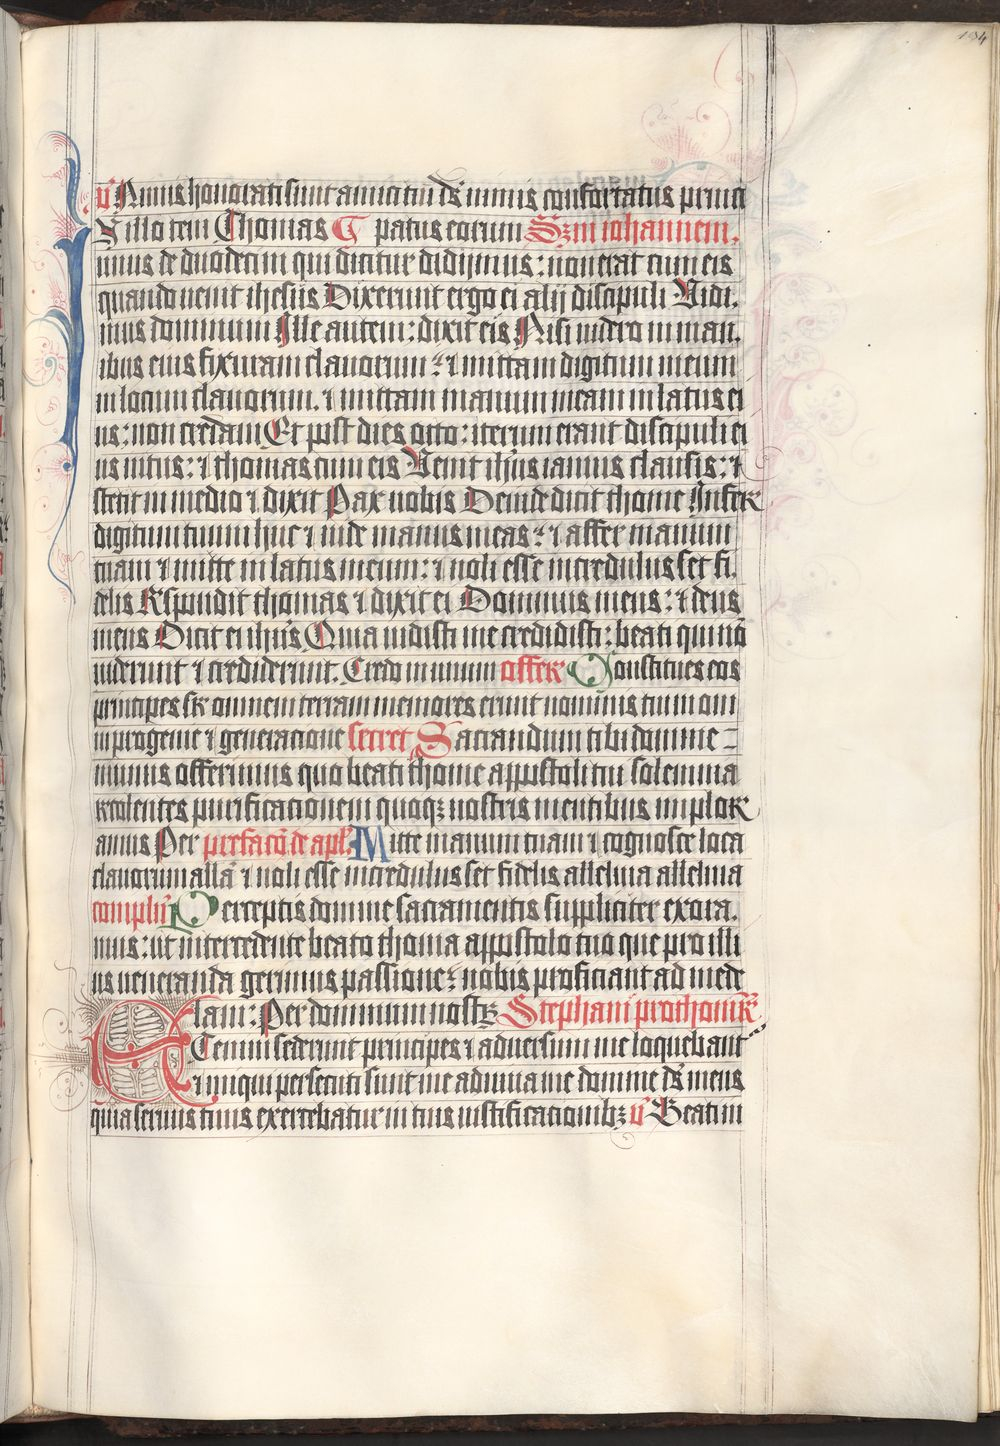 194
v̄ Nimis honorati sunt amici tui ds̄ nimis confortatus princi
N illo tem Thomas ¶ patus eorum Scd̄m iohannem.
unus de duodecim qui dicitur didijmus: non erat cum eis
quando uenit ihesus Dixerunt ergo ei alij discipuli Vidi.
mus dominum Ille autem: dixit eis Nisi uidero in man.
ibus eius fixuram clauorum: ⁊ mittam digitum meum
in locum clauorum. ⁊ mittam manum meam in latus ei
us: non credam Et post dies octo: iterum erant discipuli ei
us intus: ⁊ thomas cum eis Uenit ihūs ianuis clausis: ⁊
stetit in medio ⁊ dixit Pax uobis Deinde dicit thome Infer
digitum tuum huc ⁊ uide manus meas: ⁊ affer manum
tuam ⁊ mitte in latus meum: ⁊ noli esse incredulus set fi.
delis Rs̄pondit thomas ⁊ dixit ei Dominus meus: ⁊ deus
meus Dicit ei ihūs Quia uidisti me credidisti: beati qui nō
uiderunt ⁊ crediderunt. Credo in unum offer Constitues eos
principes sr̄ omnem terram memores erunt nominis tui in om
ni progenie ⁊ generacione secret Sacrandum tibi domine =
munus offerimus quo beati thome appostoli tui solemnia
recolentes purificacionem quoqꝫ nostris mentibus implor
amus Per prefacō de apl̄. Mitte manum tuam ⁊ cognosce loca
clauorum alla ⁊ noli esse incredulus set fidelis alleluia alleluia
compln̄ Perceptis domine sacramentis suppliciter exora.
mus: ut intercedente beato thoma appostolo tuo que pro illi
us ueneranda gerimus passione: nobis proficiant ad mede
lam: Per dominum nostꝝ Stephani prothomr̄
Etenim sederunt principes ⁊ aduersum me loquebant᷑
⁊ iniqui persecuti sunt me adiuua me domine ds̄ meus
quia seruus tuus exercebatur in tuis iustificacionibꝫ v̄ Beati in